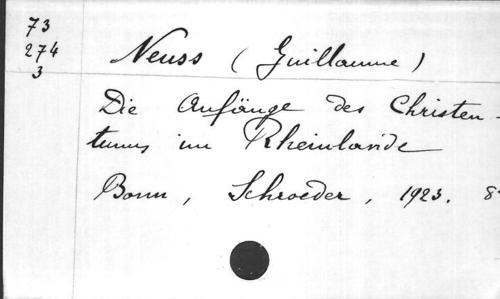 73
274
3
Neuss (Guillaume)
Die Anfänge des Christen-
tums im Rheinlande
Bonn, Schroeder, 1923. 8°